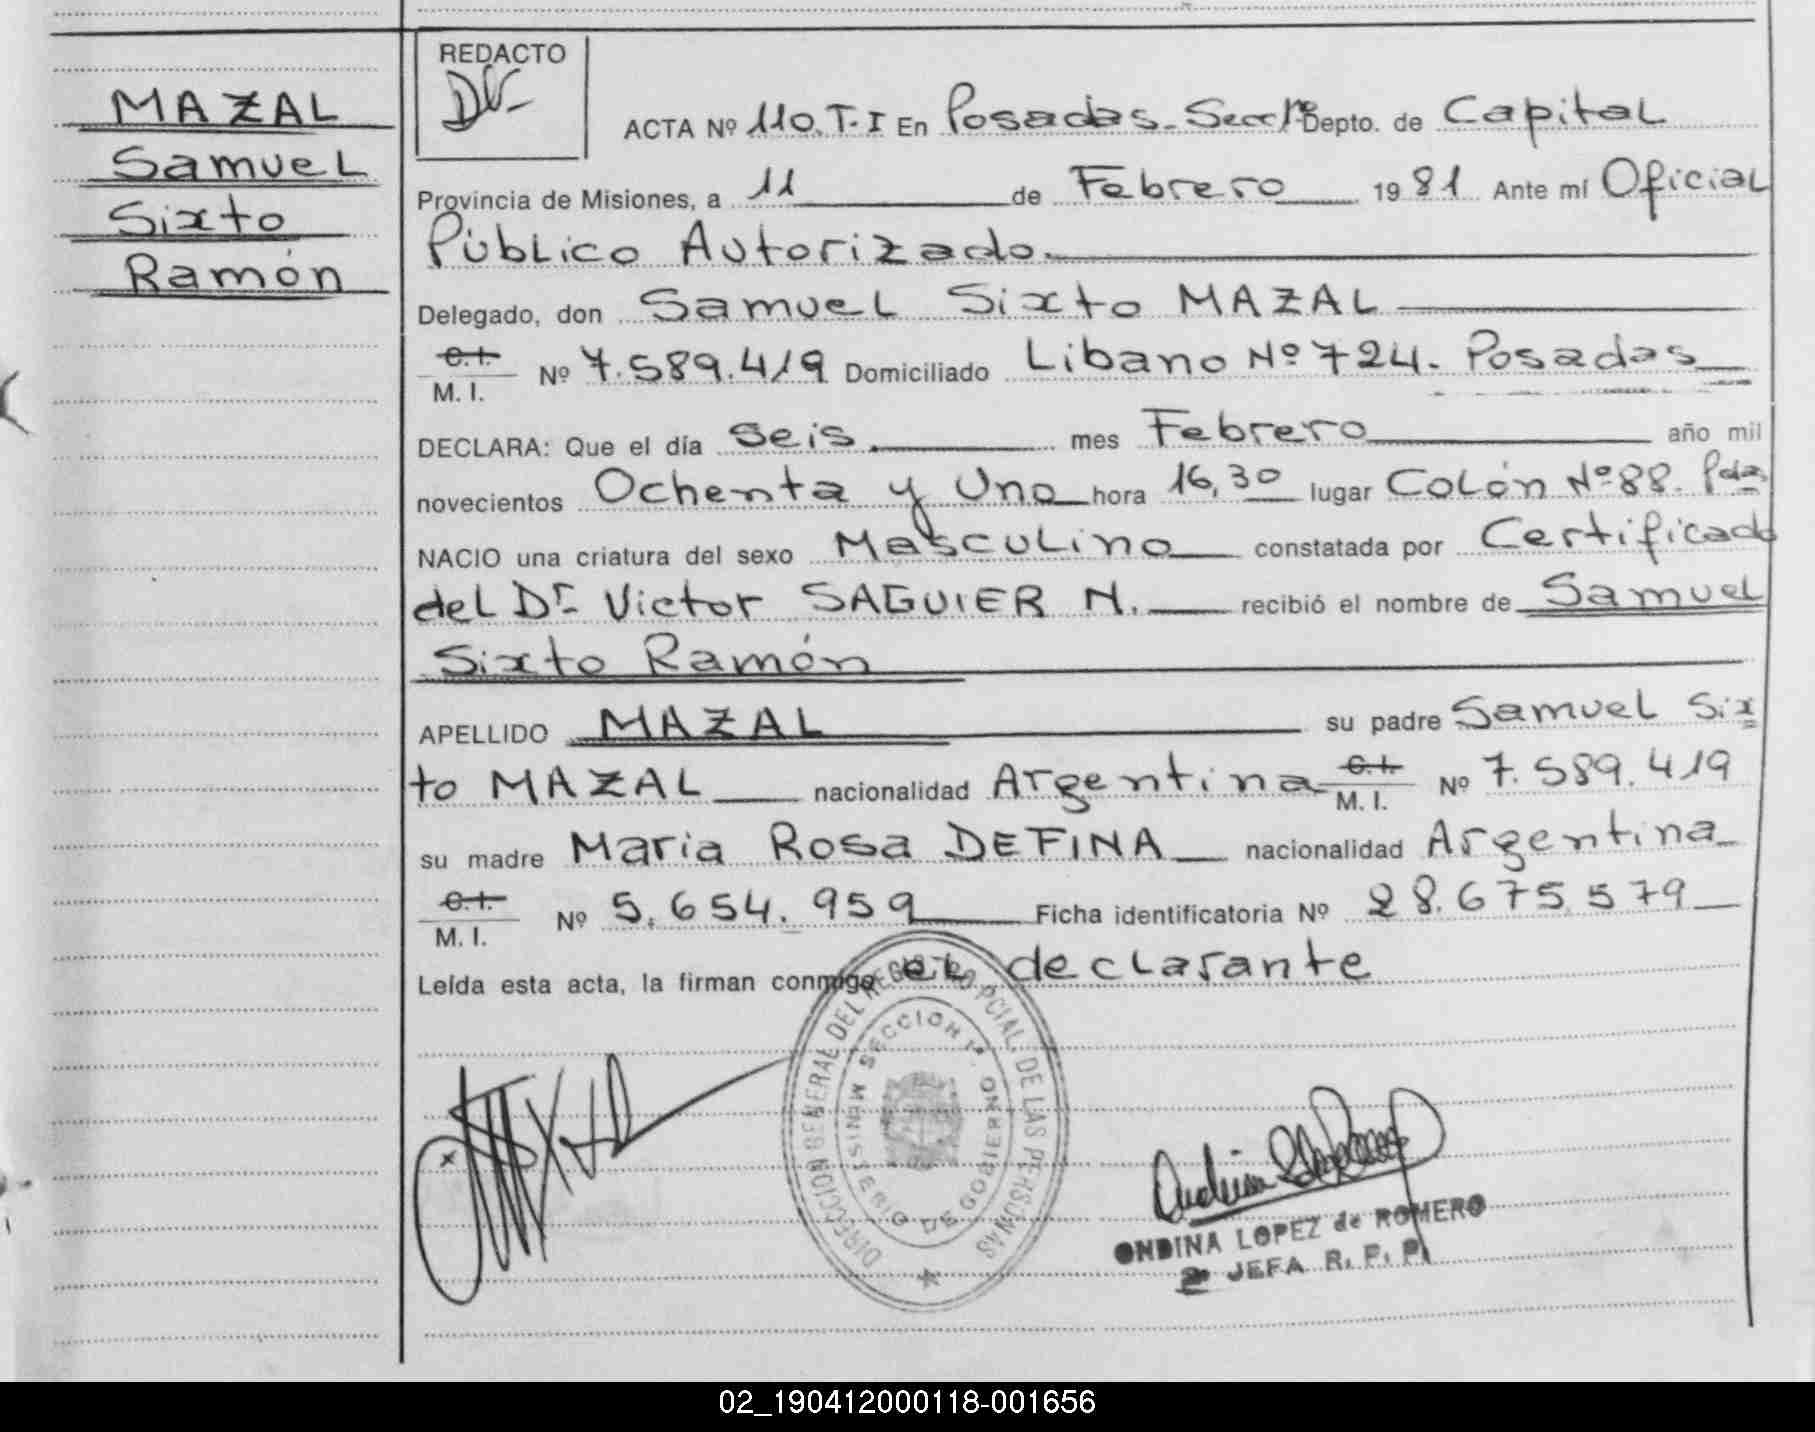 MAZAL
Samuel
Sixto
Ramón
REDACTO
ACTA Nº 110. T-I En Posadas - Secc 1ª Depto. de Capital
Provincia de Misiones, a 11 de Febrero 1981 Ante mí Oficial
Público Autorizado.
Delegado, don Samuel Sixto MAZAL
C.I. M. I. Nº 7.589.419 Domiciliado Libano Nº 724. Posadas
DECLARA: Que el día Seis. mes Febrero año mil
novecientos Ochenta y Uno hora 16,30 lugar Colón Nº 88. Pdas
NACIO una criatura del sexo Masculino constatada por Certificado
del Dr. Victor SAGUIER N. recibió el nombre de Samuel
Sixto Ramón
APELLIDO MAZAL su padre Samuel Six
to MAZAL nacionalidad Argentina C.I. M. I. Nº 7.589.419
su madre Maria Rosa DEFINA nacionalidad Argentina
C.I. M. I. Nº 5.654.959 Ficha identificatoria Nº 28.675.579
Leída esta acta, la firman conmigo el declarante
DIRECCION GENERAL DEL REGISTRO PCIAL. DE LAS PERSONAS
MINISTERIO DE GOBIERNO
SECCION 1ª
ONDINA LOPEZ de ROMERO
2º JEFA R. P. P.
02_190412000118-001656